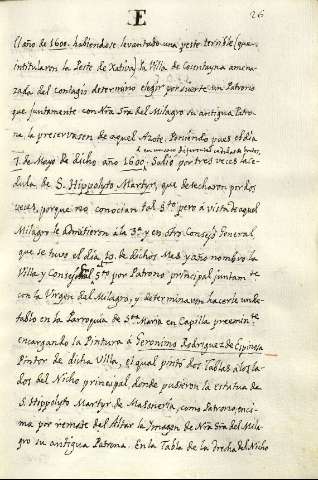 E
26
El año de 1600. habiendose levantado una peste terrible (que
intitularon la Peste de Xativa) la Villa de Cosentayna amena-
zada del contagio determino elegir por suerte un Patrono
que juntamente con Nrâ Srâ del Milagro su antigua Patro-
na, la preservasen de aquel Azote. Poniendo pues el dia
7. de Mayo de dicho año 1600. Salió por tres veces la Ce-
dula de S. Hippolyto Martyr, que desecharon por dos
veces, porque no conocian tal Sto. pero á vista de aquel
Milagro le admitieron á la 3ª. y en otro Consejo General
que se tuvo el dia 13. de dichos Mes y año nombro la
Villa y Consejo al Sto. por Patrono principal juntamte.
con la Virgen del Milagro, y determinaron hacerle un Re-
tablo en la Parroquia de Sta. Maria en Capilla preeminte.
encargando la Pintura á Geronimo Rodriguez de Espinosa
Pintor de dicha Villa, el qual pintó dos Tablas á los la-
dos del Nicho principal, donde pusieron la estatua de
S. Hippolyto Martyr de Mazoneria, como Patrono, enci-
ma por remate del Altar la Imagen de Nrâ Srâ del Mila-
gro su antigua Patrona. En la Tabla de la drecha del Nicho